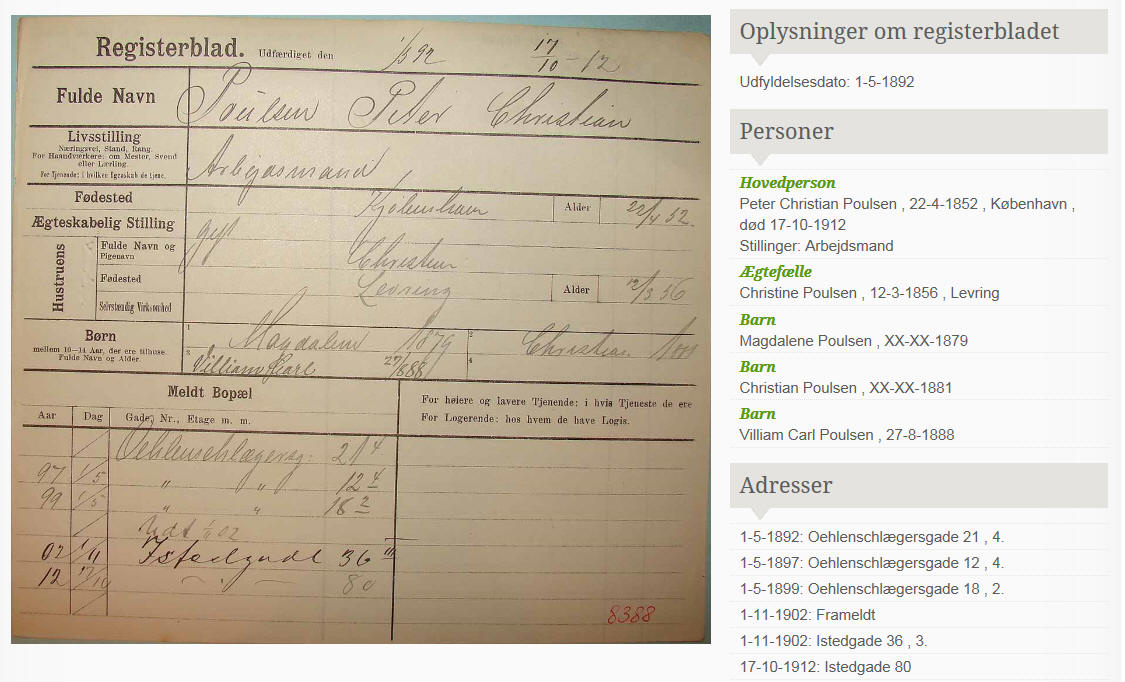 Registerblad. Udfærdiget den 1/5 92 17/10 - 12
Fulde Navn Poulsen Peter Christian
Livsstilling
Næringsvei, Stand, Rang.
For Haandværkere: om Mester, Svend
eller Lærling.
For Tjenende: i hvilken Egenskab de tjene.
Arbejdsmand
Fødested Kjøbenhavn Alder 22/4 52.
Ægteskabelig Stilling gift
Hustruens
Fulde Navn og
Pigenavn
Christine
Fødested Levring Alder 12/3 56
Selvstændig Virksomhed
Børn
mellem 10-14 Aar, der ere tilhuse.
Fulde Navn og Alder.
1 Magdalene 1879 2 Christian 1881
3 Villiam Carl 27/8 88 4
Meldt Bopæl
For høiere og lavere Tjenende: i hvis Tjeneste de ere
For Logerende: hos hvem de have Logis.
Aar Dag Gade, Nr., Etage m. m.
Oehlenschlægersg: 21 4
97 1/5 " " 12 4
99 1/5 " " 18 2
02
02 1/11 Istedgade 36 III
12 17/10 80
8388
Oplysninger om registerbladet
Udfyldelsesdato: 1-5-1892
Personer
Hovedperson
Peter Christian Poulsen , 22-4-1852 , København ,
død 17-10-1912
Stillinger: Arbejdsmand
Ægtefælle
Christine Poulsen , 12-3-1856 , Levring
Barn
Magdalene Poulsen , XX-XX-1879
Barn
Christian Poulsen , XX-XX-1881
Barn
Villiam Carl Poulsen , 27-8-1888
Adresser
1-5-1892: Oehlenschlægersgade 21 , 4.
1-5-1897: Oehlenschlægersgade 12 , 4.
1-5-1899: Oehlenschlægersgade 18 , 2.
1-11-1902: Frameldt
1-11-1902: Istedgade 36 , 3.
17-10-1912: Istedgade 80